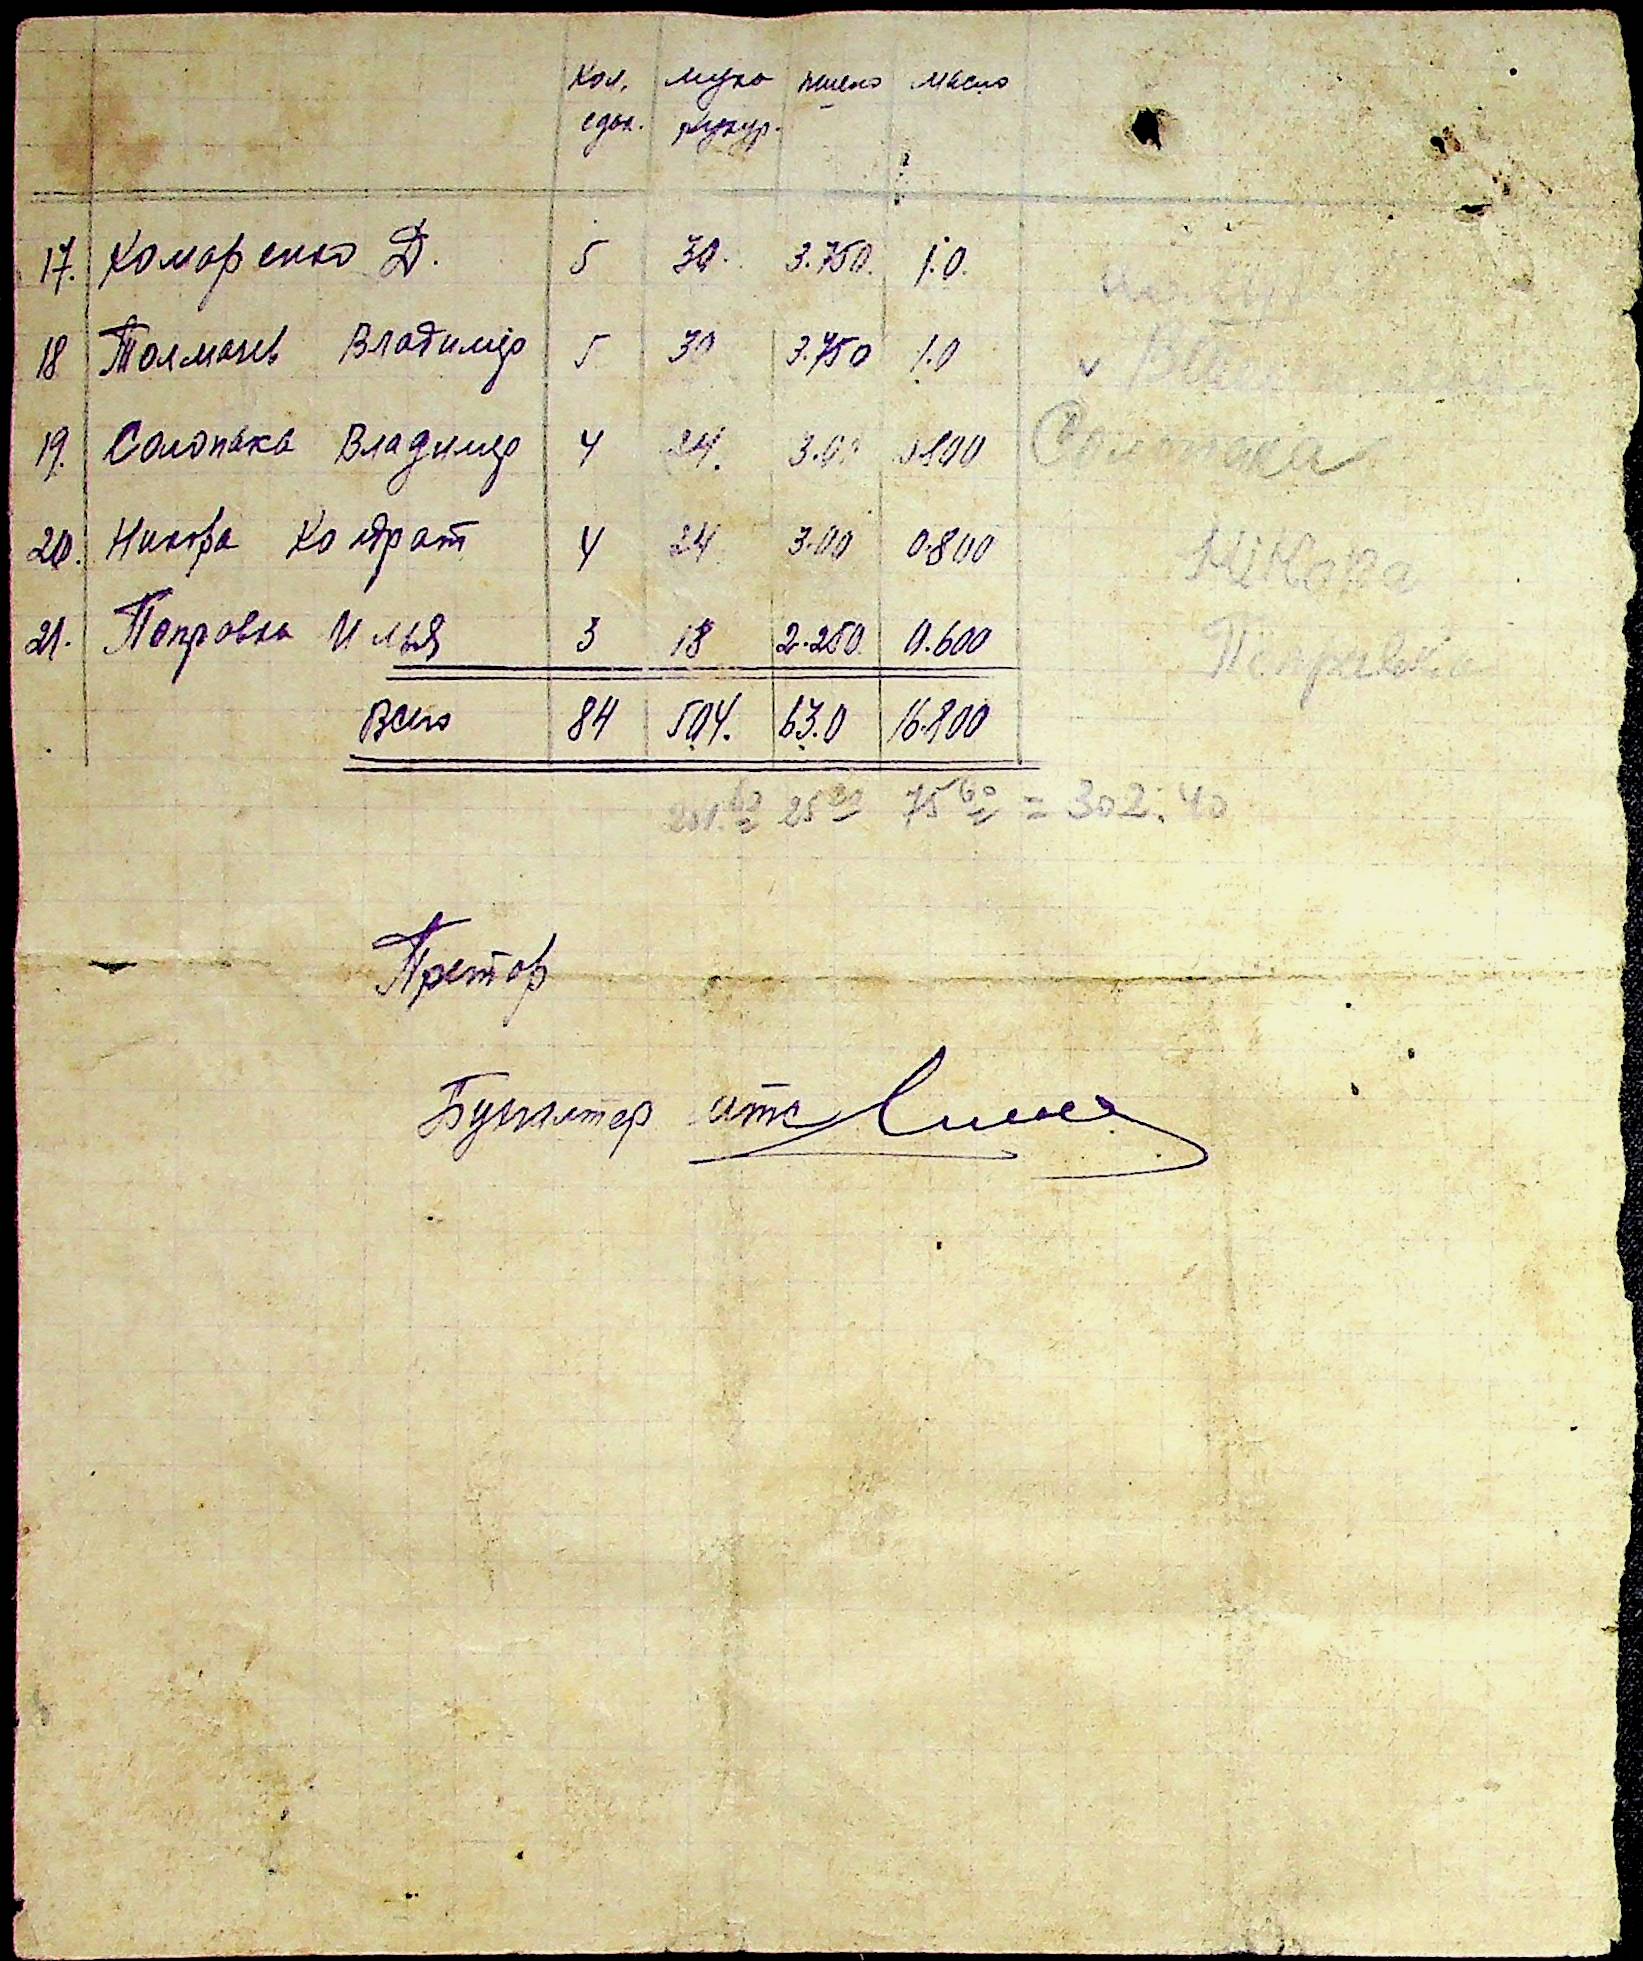 Кол. мука пшено масло
едок. кукур.
17. Комаренко Д. 5 30. 3.750. 1.0.
18 Толмачев Владимир 5 30 3.750 1.0
19. Солопака Владимир 4 24. 3.0 0.800 Солопака
20. Никора Кондрат 4 24 3.00 0.800 Нікора
21. Поправка Илья 3 18 2.250. 0.600 Поправка
Всего 84 504. 63.0 16.800
201.60 25.20 75.60 = 302.40
Претор
Бухгалтер